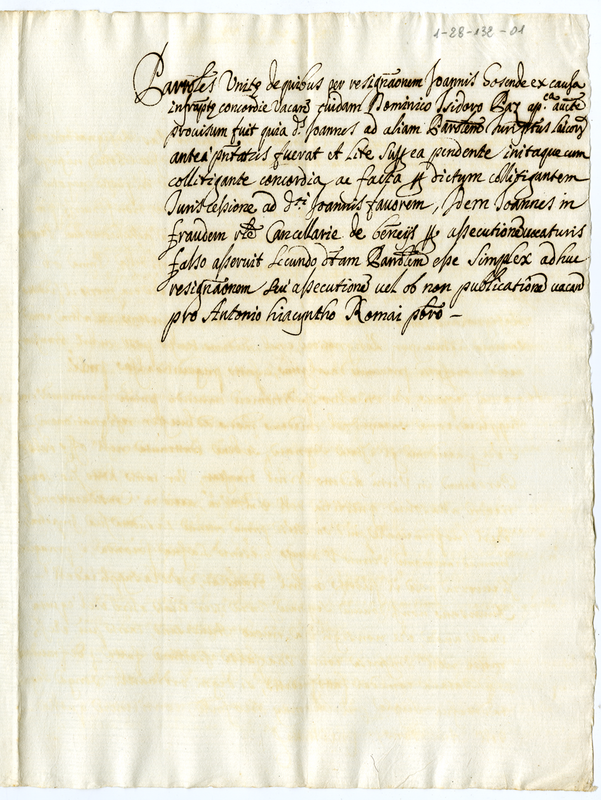 1-28-132-01
Parrõles Unitę de quibus per resignãonem Joannis Gosende ex causa
infraptę concordie vacañ cuidam Dominico Isidoro Paz ap.ca aucte
provisum fuit quia d.s Joannes ad aliam Parrõlem
antea pñtatus fuerat et Lite supp ea pendente initaque cum
collitigante concordia, ac facta p dictum collitigantem
Juri cessione ad d.ti Joannis favorem, Idem Joannes in
fraudem rłe Cancellarie de beneijs p assecutionẽ
falso asseruit secundo dtam Parrõlem esse simplex adhuc
resignãonem seu assecutionẽ vel ob non publicationẽ vacañ
pro Antonio hiacyntho Romai pbro –